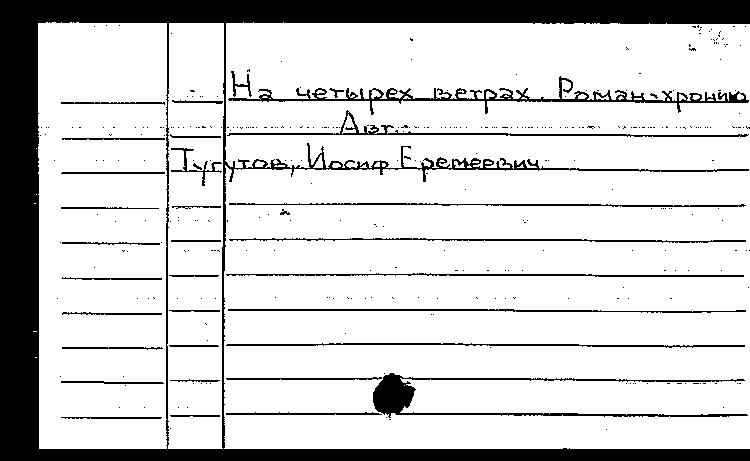 На четырех ветрах. Роман-хроник
Авт.:
Тугутов, Иосиф Еремеевич.